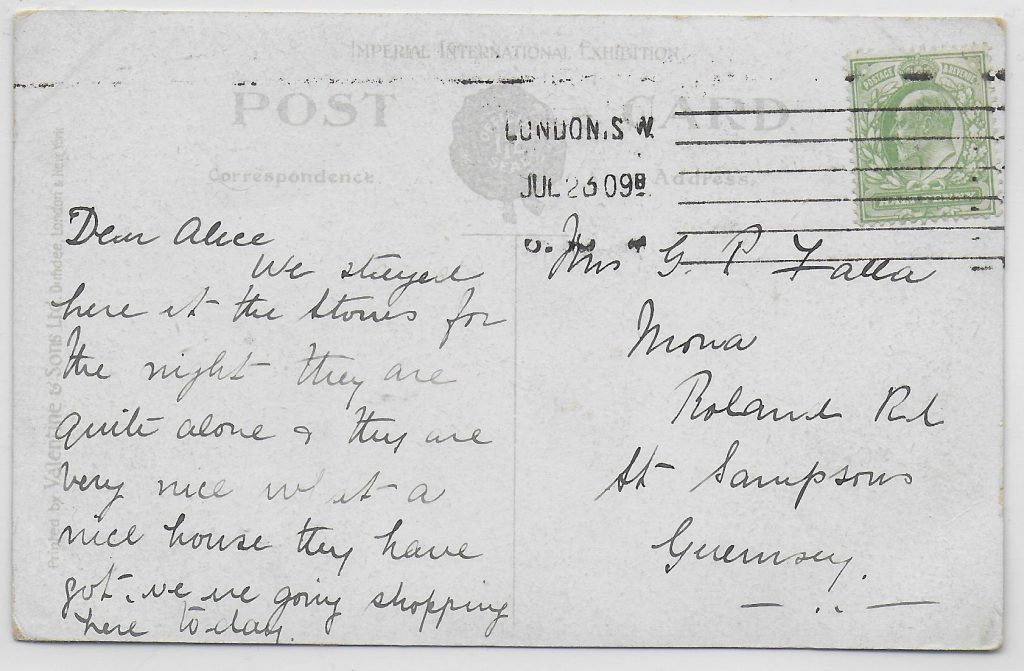 IMPERIAL INTERNATIONAL EXHIBITION
POST CARD
LONDON. S.W.
JUL 26 09
Correspondence
Address.
POSTAGE & REVENUE
Printed by Valentine & Sons Ltd Dundee, London & New York
Dear Alice
We stayed
here at the Stones for
the night they are
quite alone & they are
very nice what a
nice house they have
got. we are going shopping
here to-day.
Mrs G. P Falla
Mona
Roland Rd
St Sampsons
Guernsey.